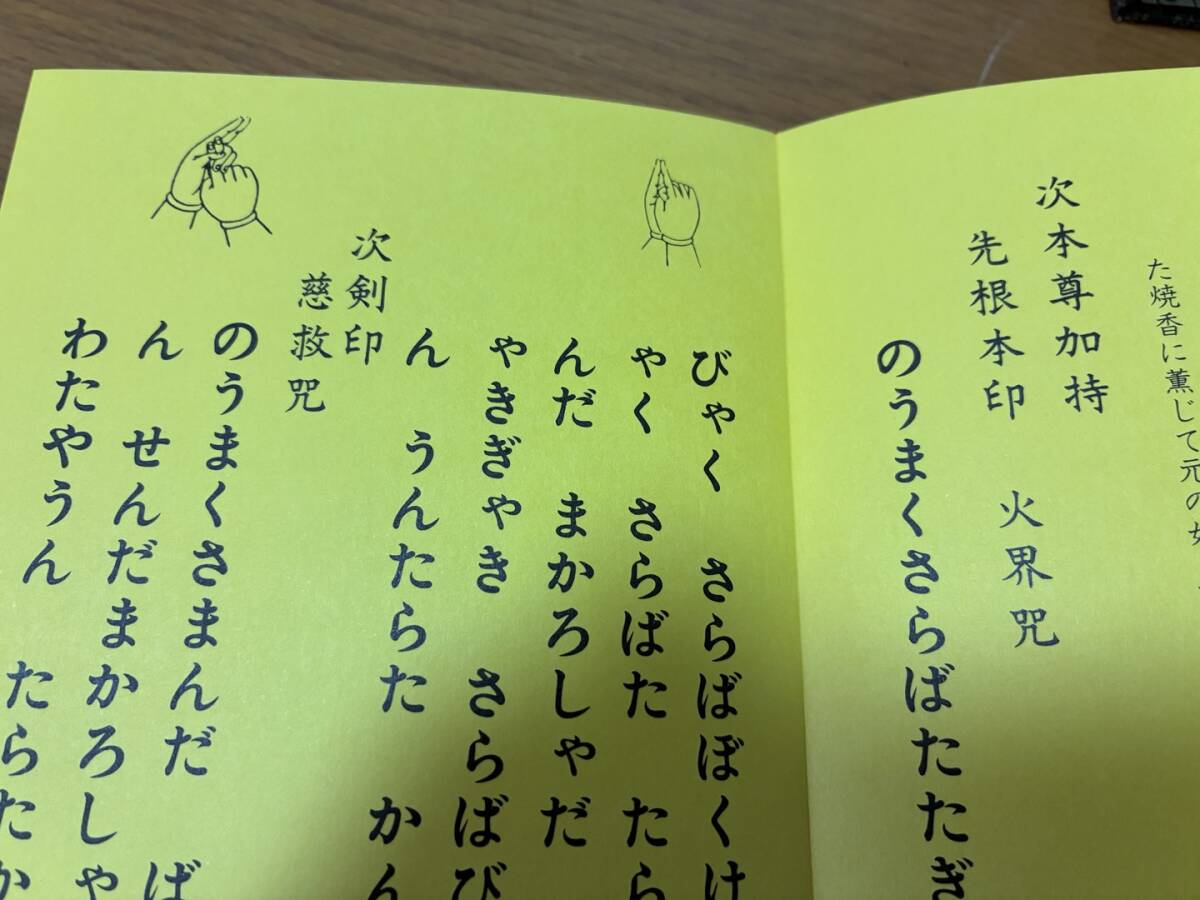 た焼香に薫じて元の
次本尊加持
先根本印 火界咒
のうまくさらばたたぎ
びゃく さらばぼくけ
ゃく さらばた たら
んだ まかろしゃだ
ゃきぎゃき さらばび
ん うんたらた かん
次剣印
慈救咒
のうまくさまんだ ば
ん せんだまかろしゃ
わたやうん たらたか